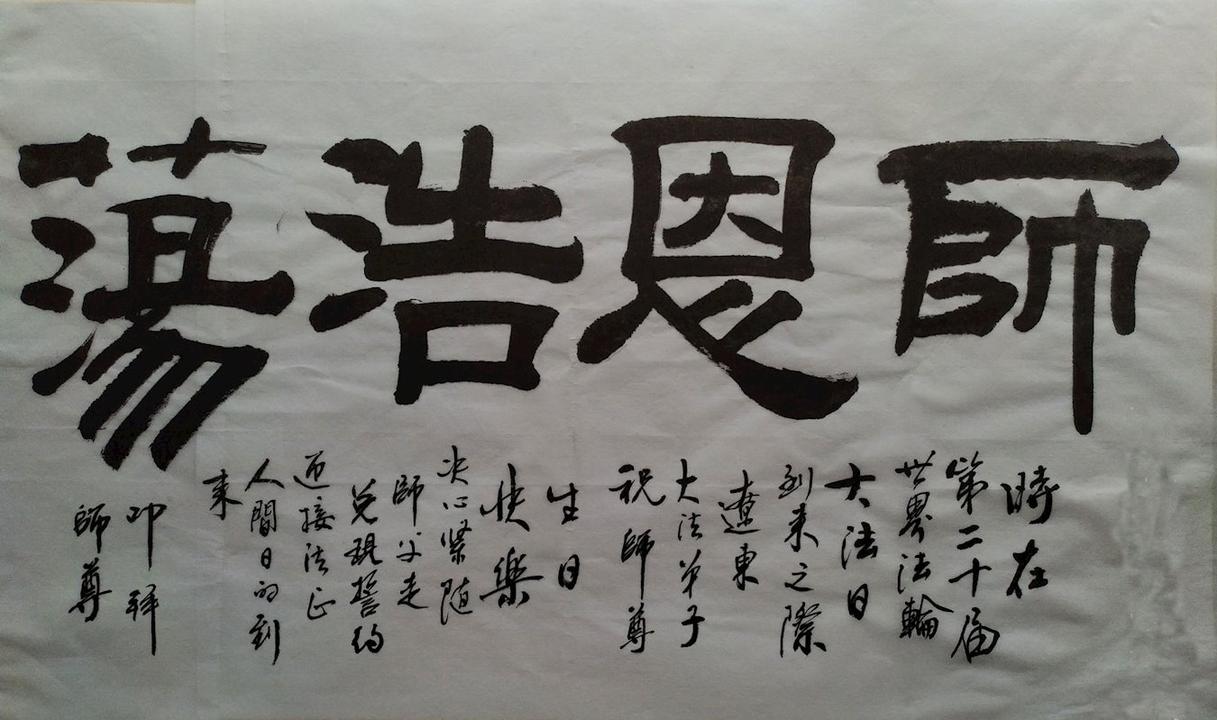 師恩浩蕩
時在
第二十届
世界法輪
大法日
到来之際
遼東
大法弟子
祝師尊
生日
快樂
决心紧随
師父走
兑現誓约
迎接法正
人間日的到
来
叩拜
師尊